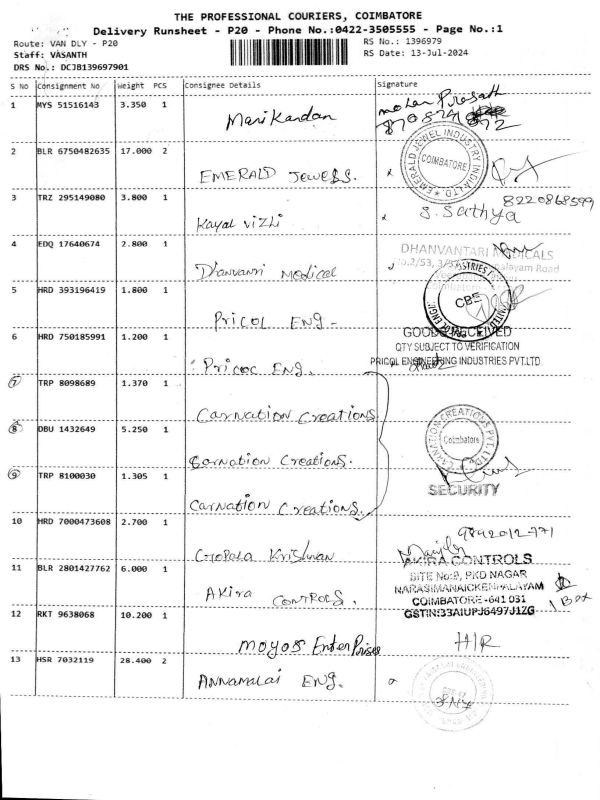 THE PROFESSIONAL COURIERS, COIMBATORE
Delivery Runsheet - P20 - Phone No.:0422-3505555 - Page No.:1
Route: VAN DLY - P20 RS No.: 1396979
Staff: VASANTH RS Date: 13-Jul-2024
DRS No.: DCJB139697901
S No Consignment No Weight PCS Consignee Details Signature
1 MYS 51516143 3.350 1 Manikandan Mohan Prasath
2 BLR 6750482635 17.000 2 EMERALD Jewels.
EMERALD JEWEL INDUSTRY INDIA LTD
COIMBATORE
3 TRZ 295149080 3.800 1 Kayal vizhi S. Sathya 8220868599
4 EDQ 17640674 2.800 1 Dhanvanri Medical
DHANVANTARI MEDICALS
5 HRD 393196419 1.800 1 Pricol ENG-
CBE
6 HRD 750185991 1.200 1 Pricol Eng.
GOODS RECEIVED
QTY SUBJECT TO VERIFICATION
PRICOL ENGINEERING INDUSTRIES PVT.LTD
7 TRP 8098689 1.370 1 Carnation Creations
8 DBU 1432649 5.250 1 Carnation Creations.
CARNATION CREATIONS PVT. LTD
Coimbatore
9 TRP 8100030 1.305 1 Carnation Creations.
SECURITY
10 HRD 7000473608 2.700 1 Gopala Krishnan
11 BLR 2801427762 6.000 1 Akira CONTROLS.
AKIRA CONTROLS
SITE No:9, PKD NAGAR
NARASIMANAICKENPALAYAM
COIMBATORE-641 031
GSTIN:33AIUPJ6497J1ZG
1 Box
12 RKT 9638068 10.200 1 Moyos EnterPrises H/R
13 HSR 7032119 28.400 2 ANNAMALAI ENG.